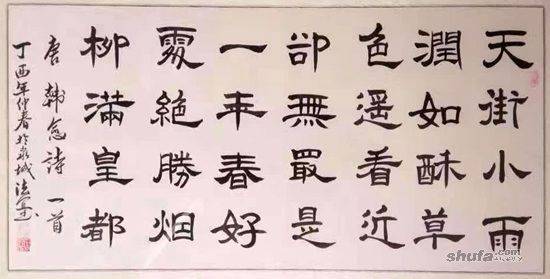 天街小雨
潤如酥草
色遥看近
卻無最是
一年春好
處絕勝烟
柳滿皇都
唐韓愈詩一首
丁酉年仲春於泉城
shufa.com